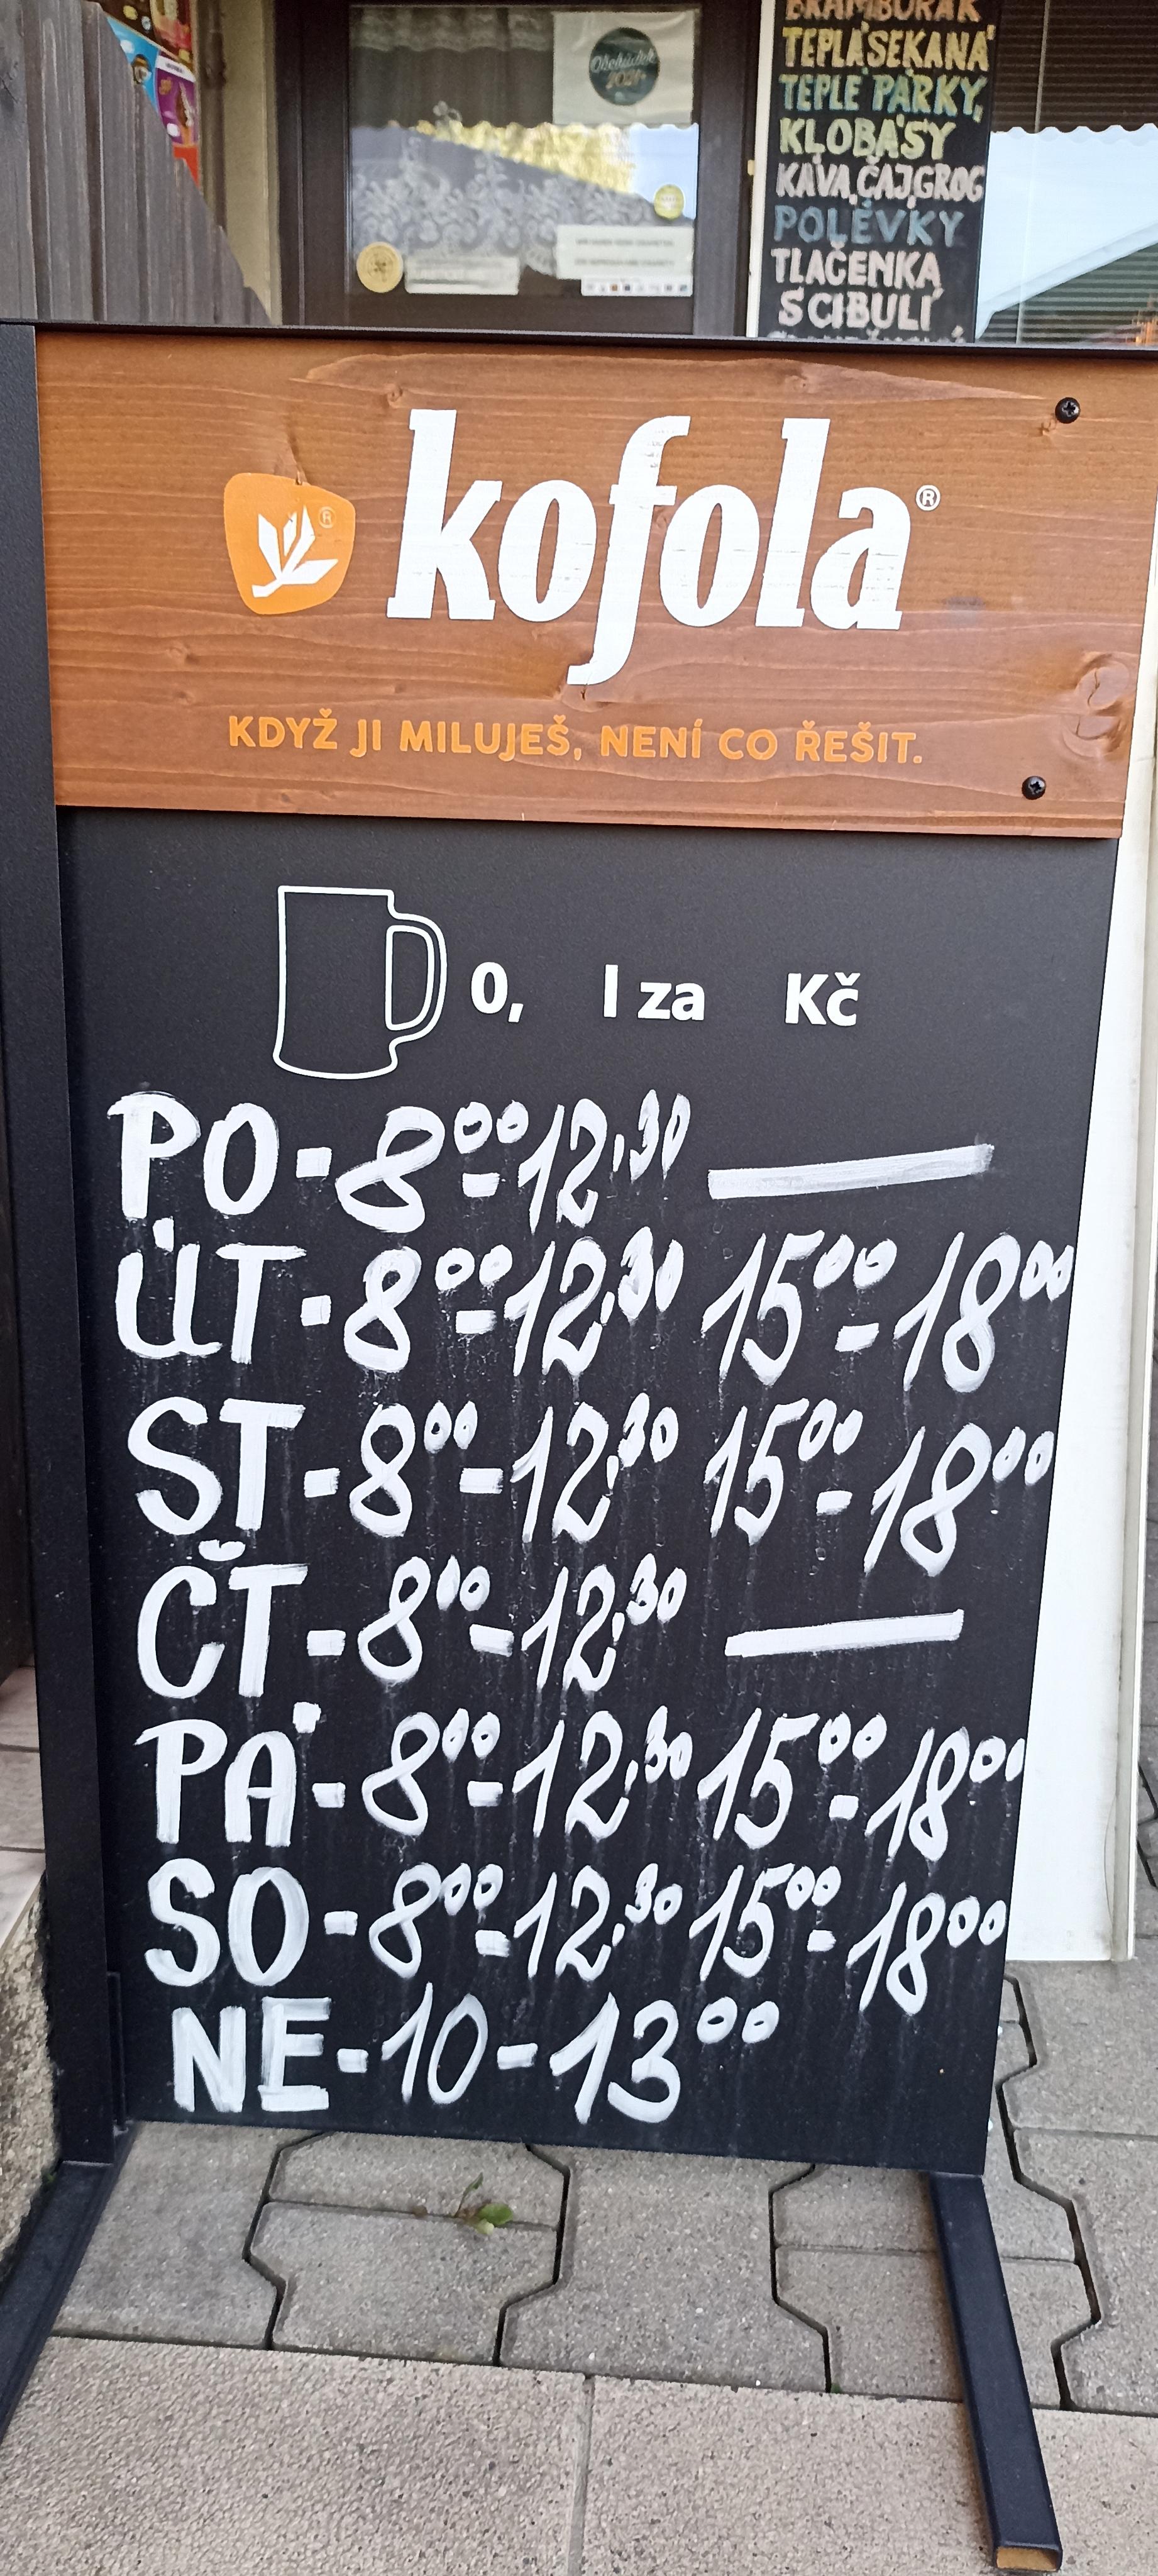 Obchůdek
2021+
BRAMBORÁK
TEPLÁ SEKANÁ
TEPLÉ PÁRKY,
KLOBÁSY
KÁVA, ČAJ, GROG
POLÉVKY
TLAČENKA
S CIBULÍ
kofola®
KDYŽ JI MILUJEŠ, NENÍ CO ŘEŠIT.
0, l za Kč
PO - 8⁰⁰ - 12,³⁰ —
ÚT - 8⁰⁰ - 12,³⁰ 15⁰⁰ - 18⁰⁰
ST - 8⁰⁰ - 12,³⁰ 15⁰⁰ - 18⁰⁰
ČT - 8⁰⁰ - 12,³⁰ —
PÁ - 8⁰⁰ - 12,³⁰ 15⁰⁰ - 18⁰⁰
SO - 8⁰⁰ - 12,³⁰ 15⁰⁰ - 18⁰⁰
NE - 10 - 13⁰⁰